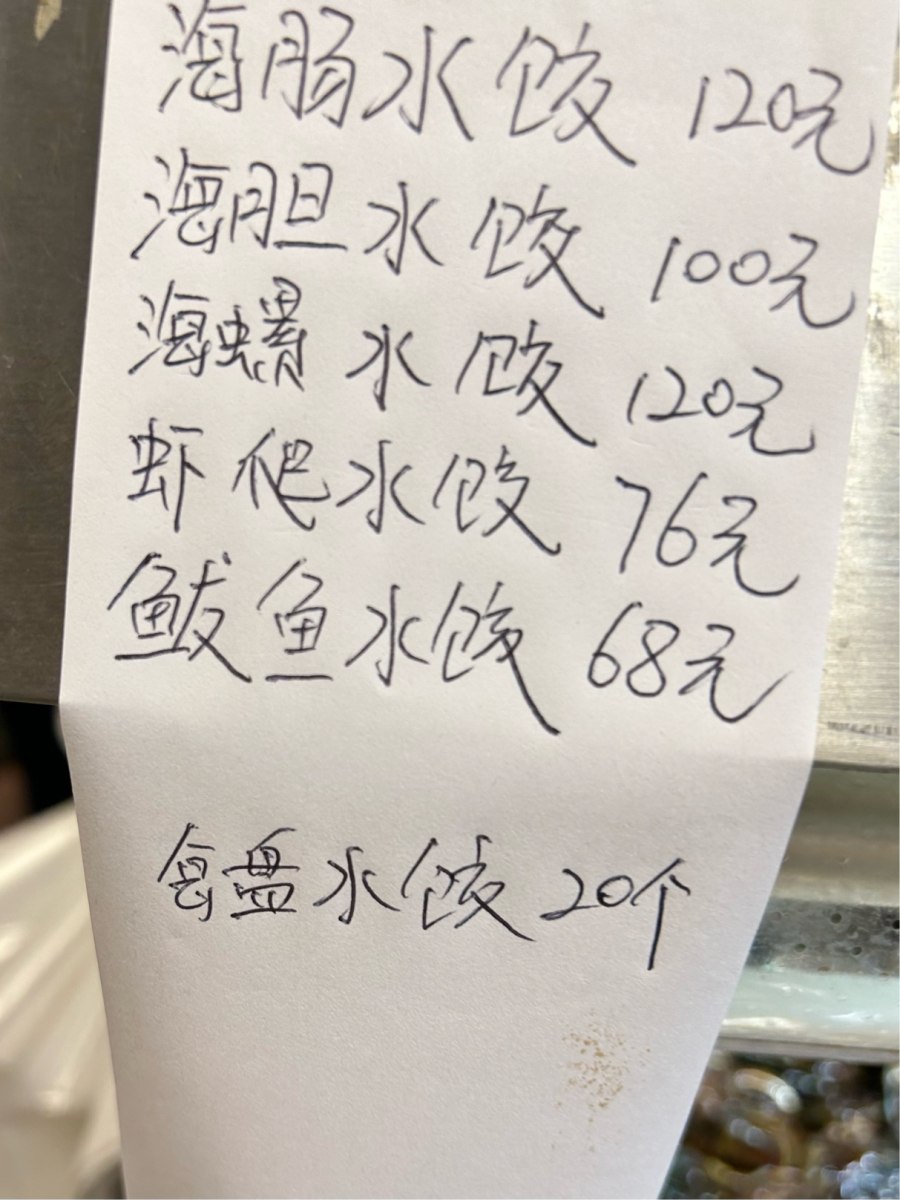 海肠水饺 120元
海胆水饺 100元
海螺水饺 120元
虾爬水饺 76元
鲅鱼水饺 68元
每盘水饺 20个